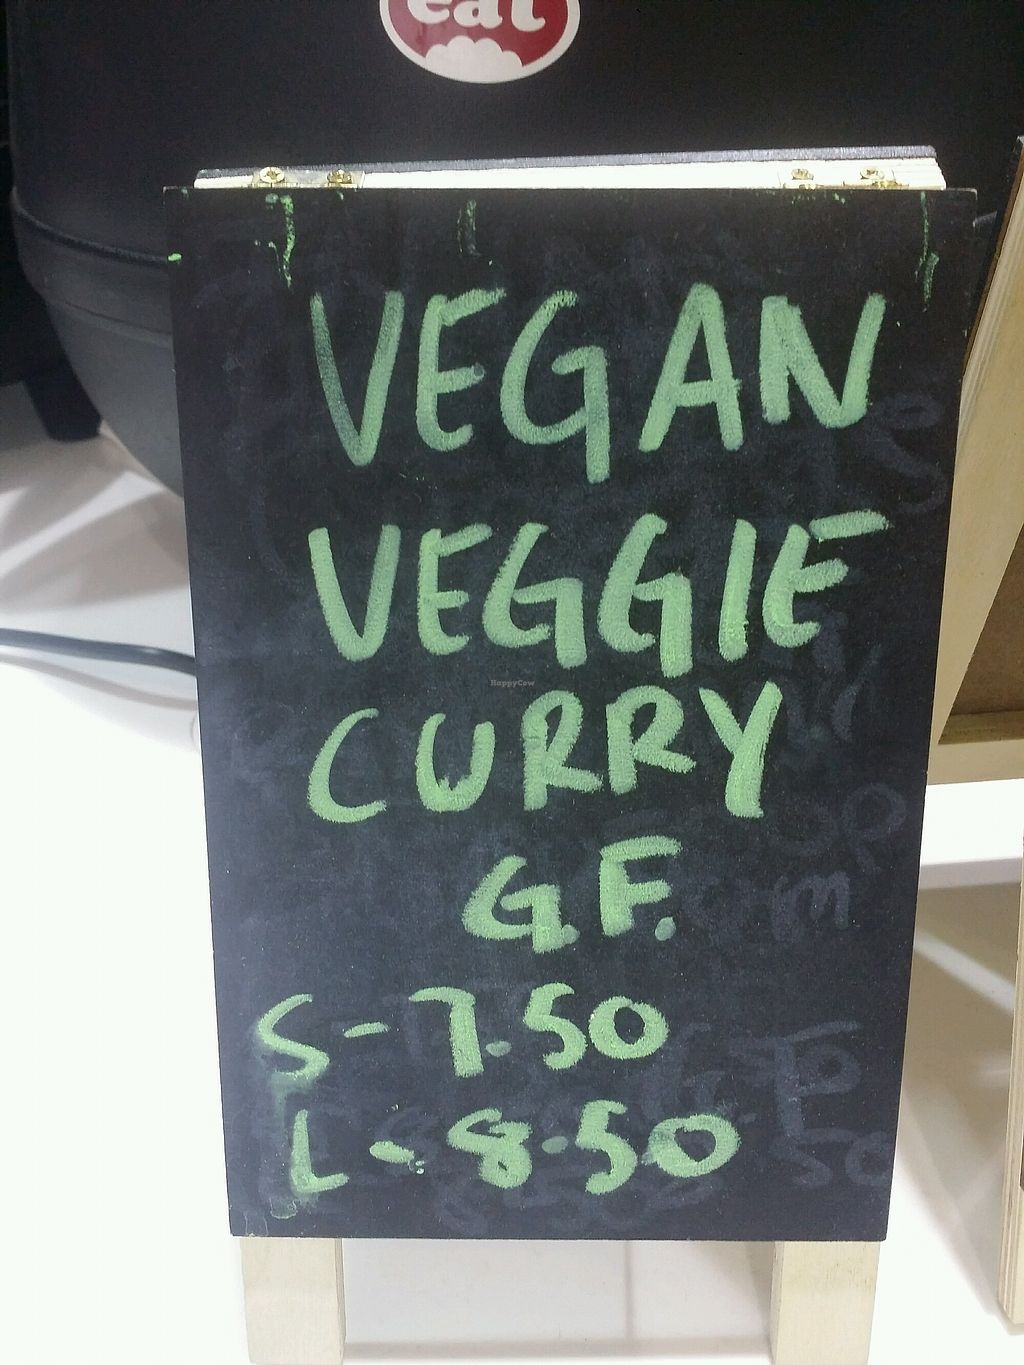 eat
VEGAN
VEGGIE
HappyCow
CURRY
G.F.
S - 7.50
L - 8.50